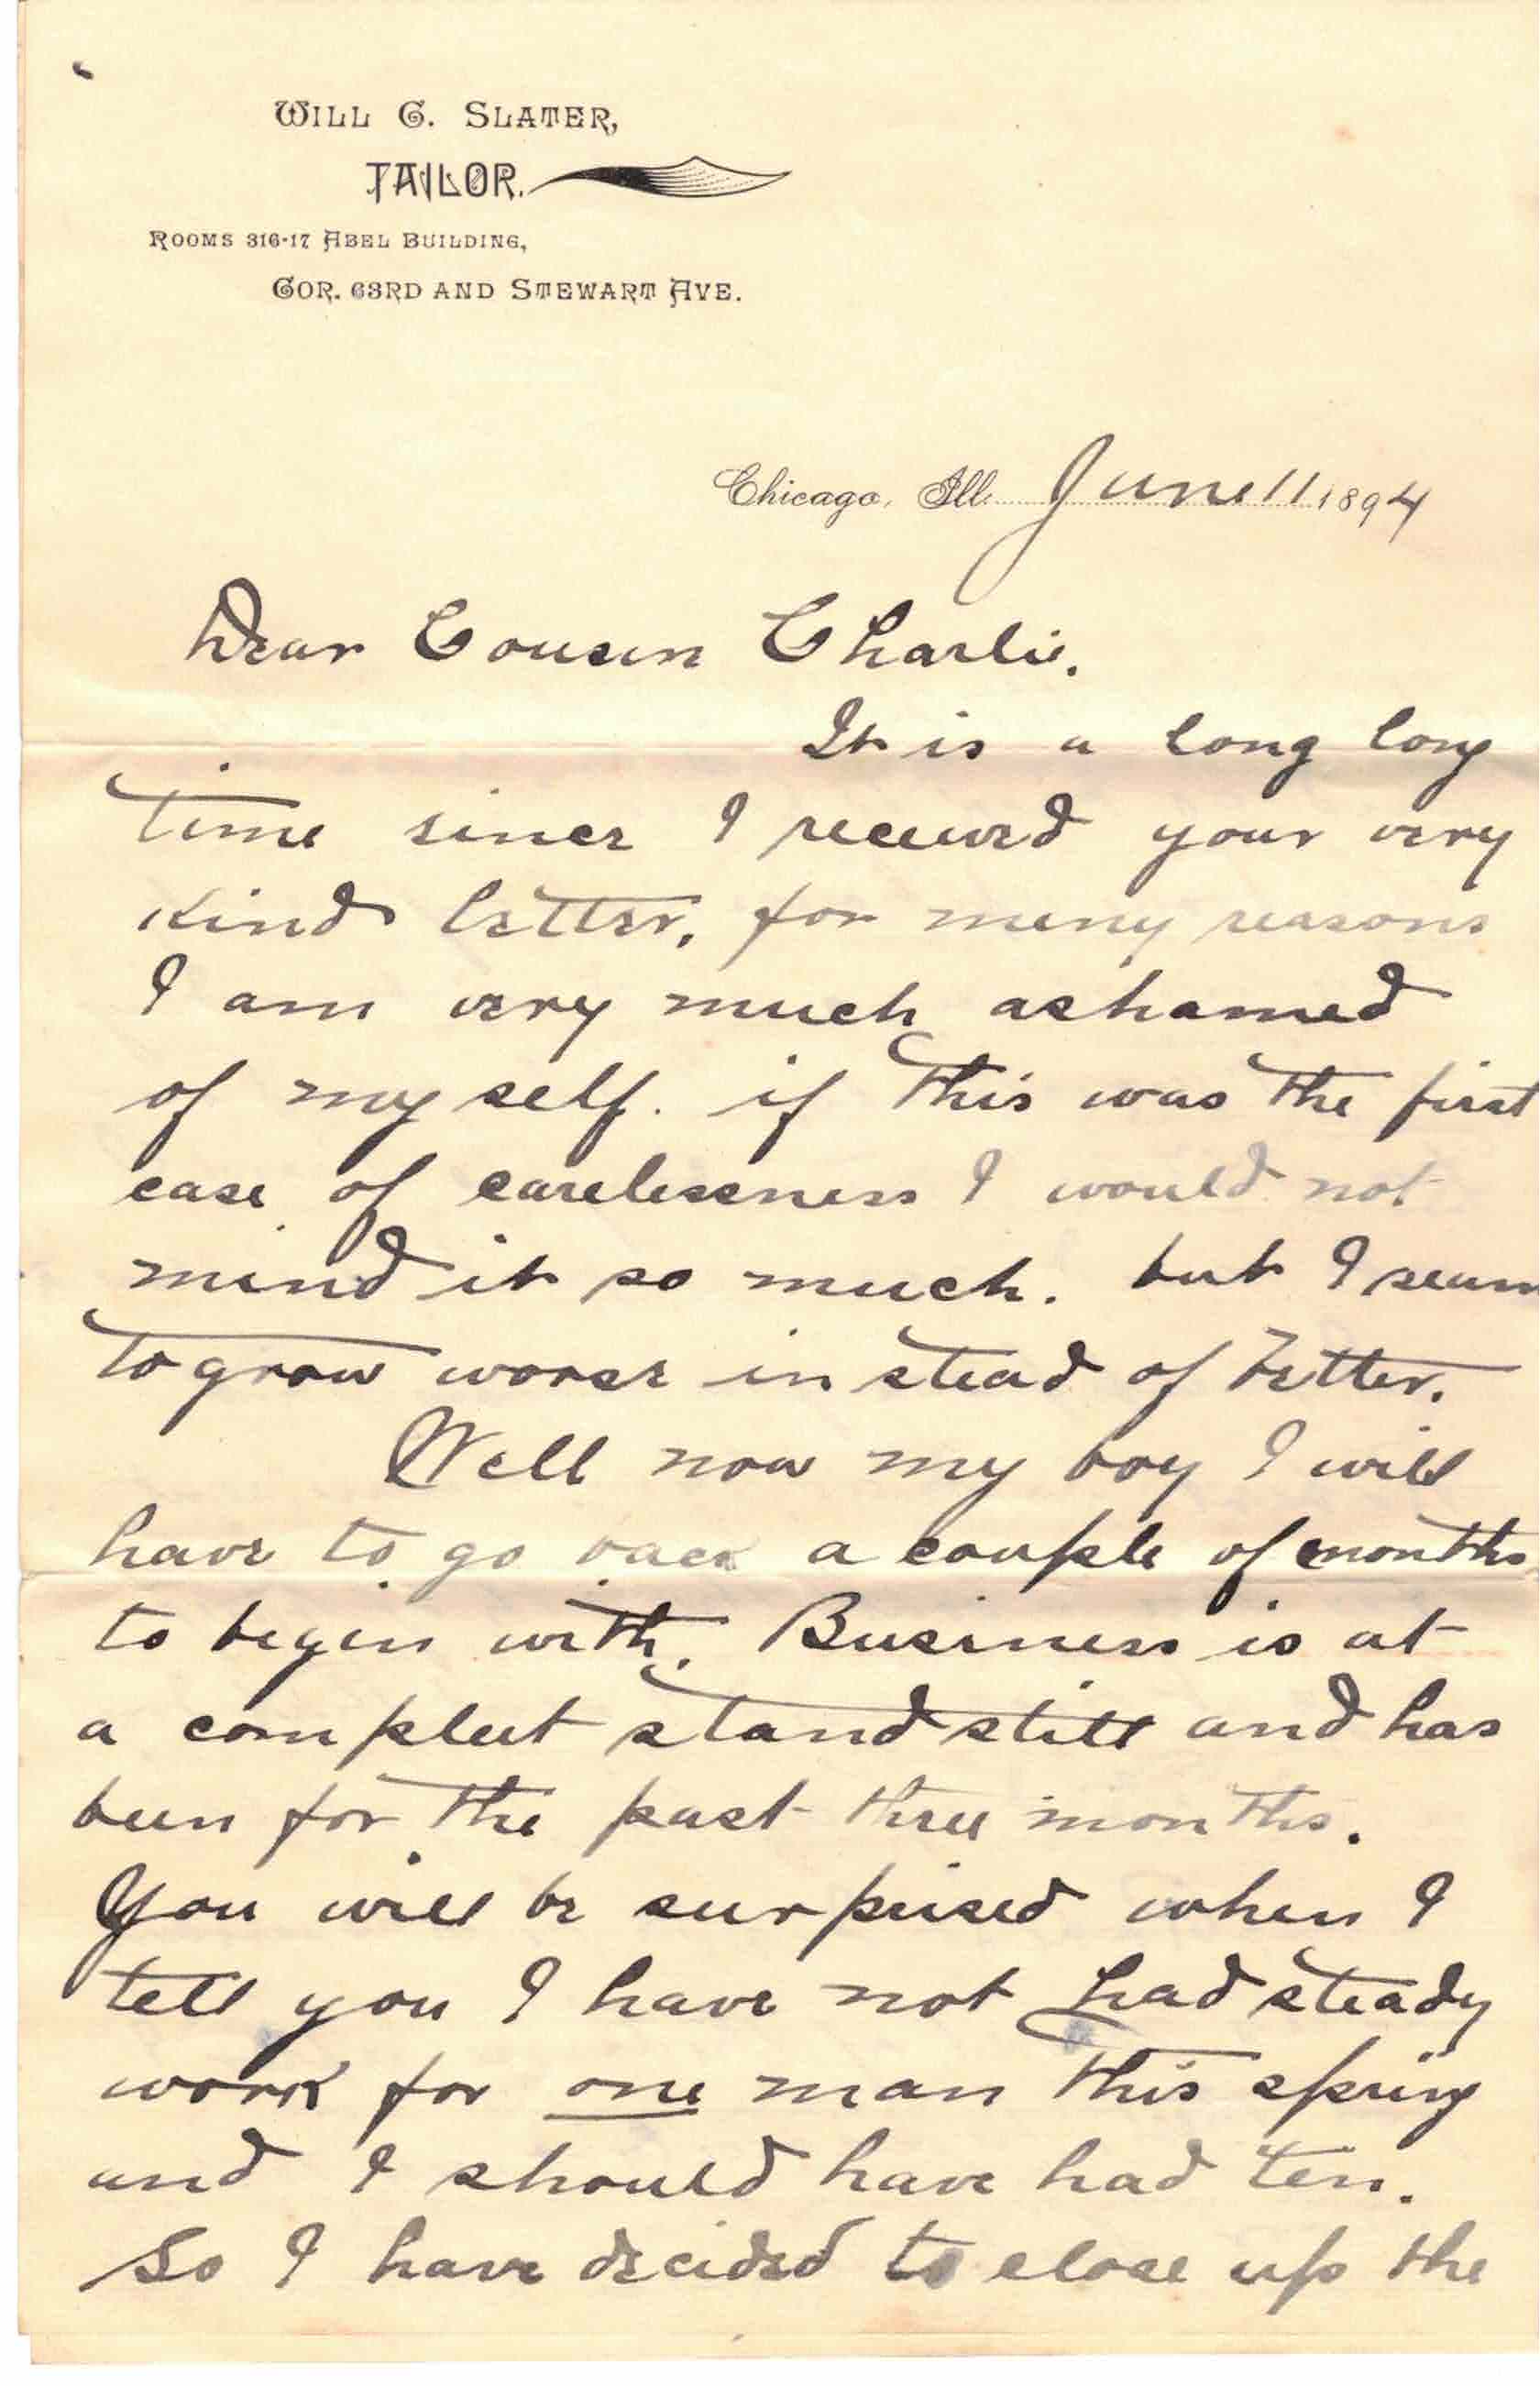 WILL G. SLATER,
TAILOR.
ROOMS 316-17 ABEL BUILDING,
COR. 63RD AND STEWART AVE.
Chicago, Ill. June 11 1894
Dear Cousin Charlie.
It is a long long
time since I received your very
kind letter. for meny reasons
I am very much ashamed
of my self. if this was the first
case of carelessness I would not
mind it so much. but I seem
to grow worse in stead of better.
Well now my boy I will
have to go back a couple of months
to begin with. Business is at
a compleet stand still and has
been for the past three months.
You will be surprised when I
tell you I have not had steady
work for one man this spring
and I should have had ten.
So I have decided to close up the